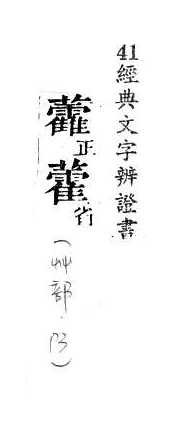 41經典文字辨證書
𧆑正藿省(艸部.13)